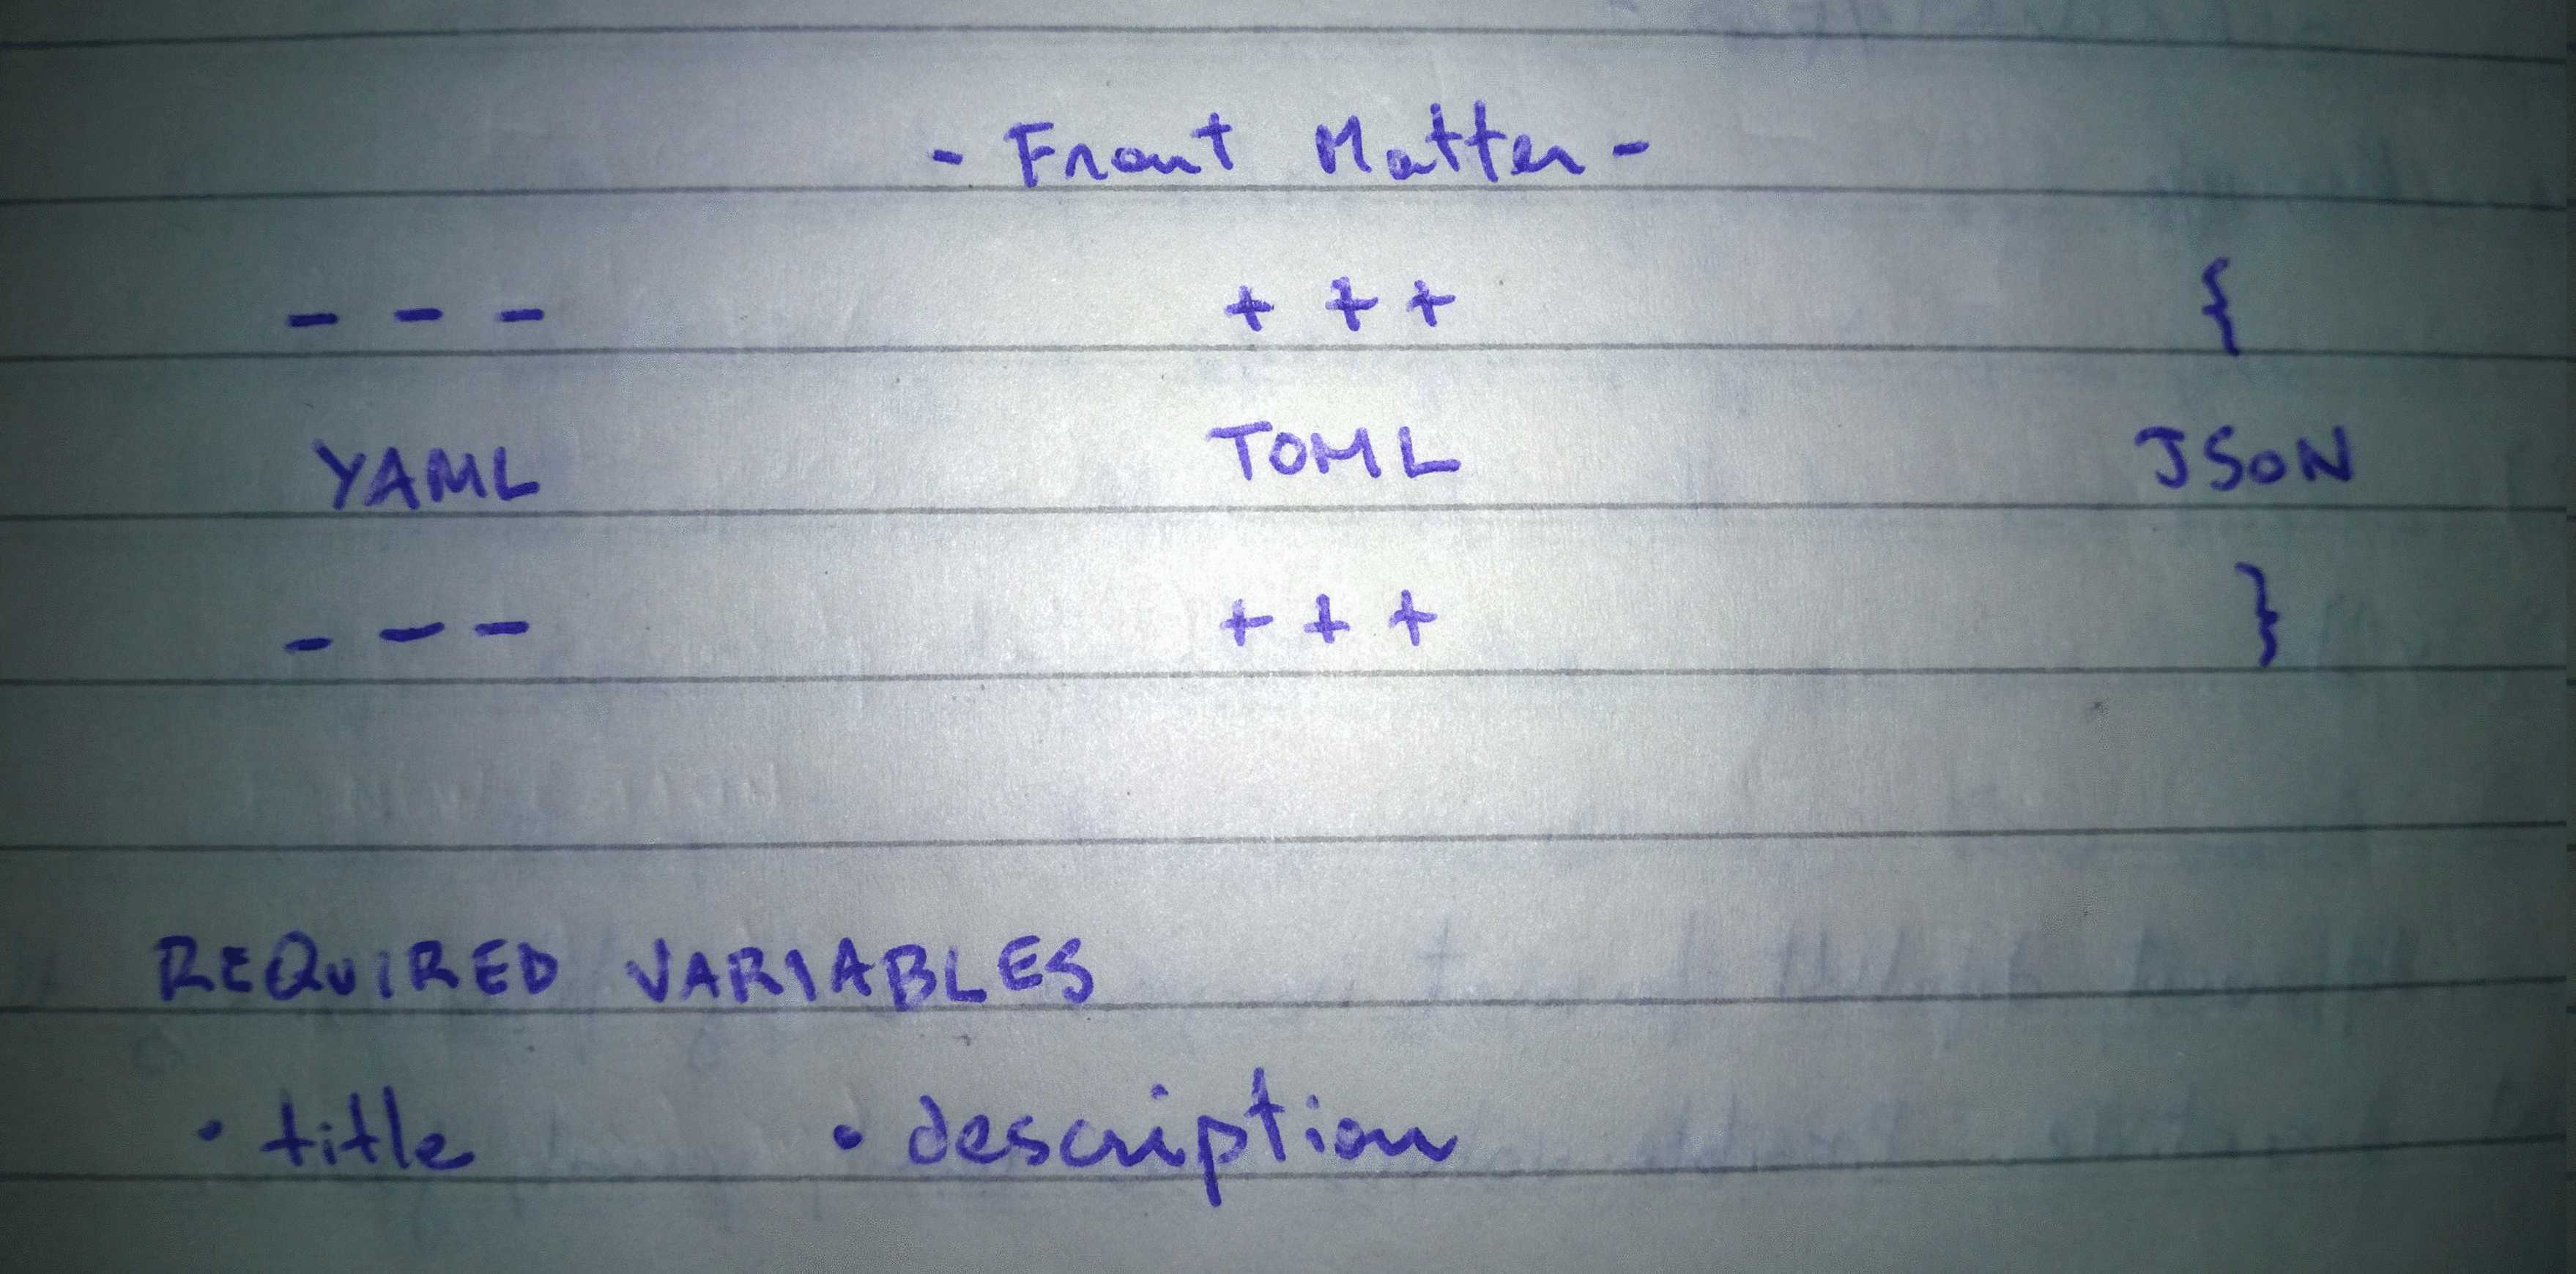 - Front Matter -
--- +++ {
YAML TOML JSON
--- +++ }
REQUIRED VARIABLES
• title • description